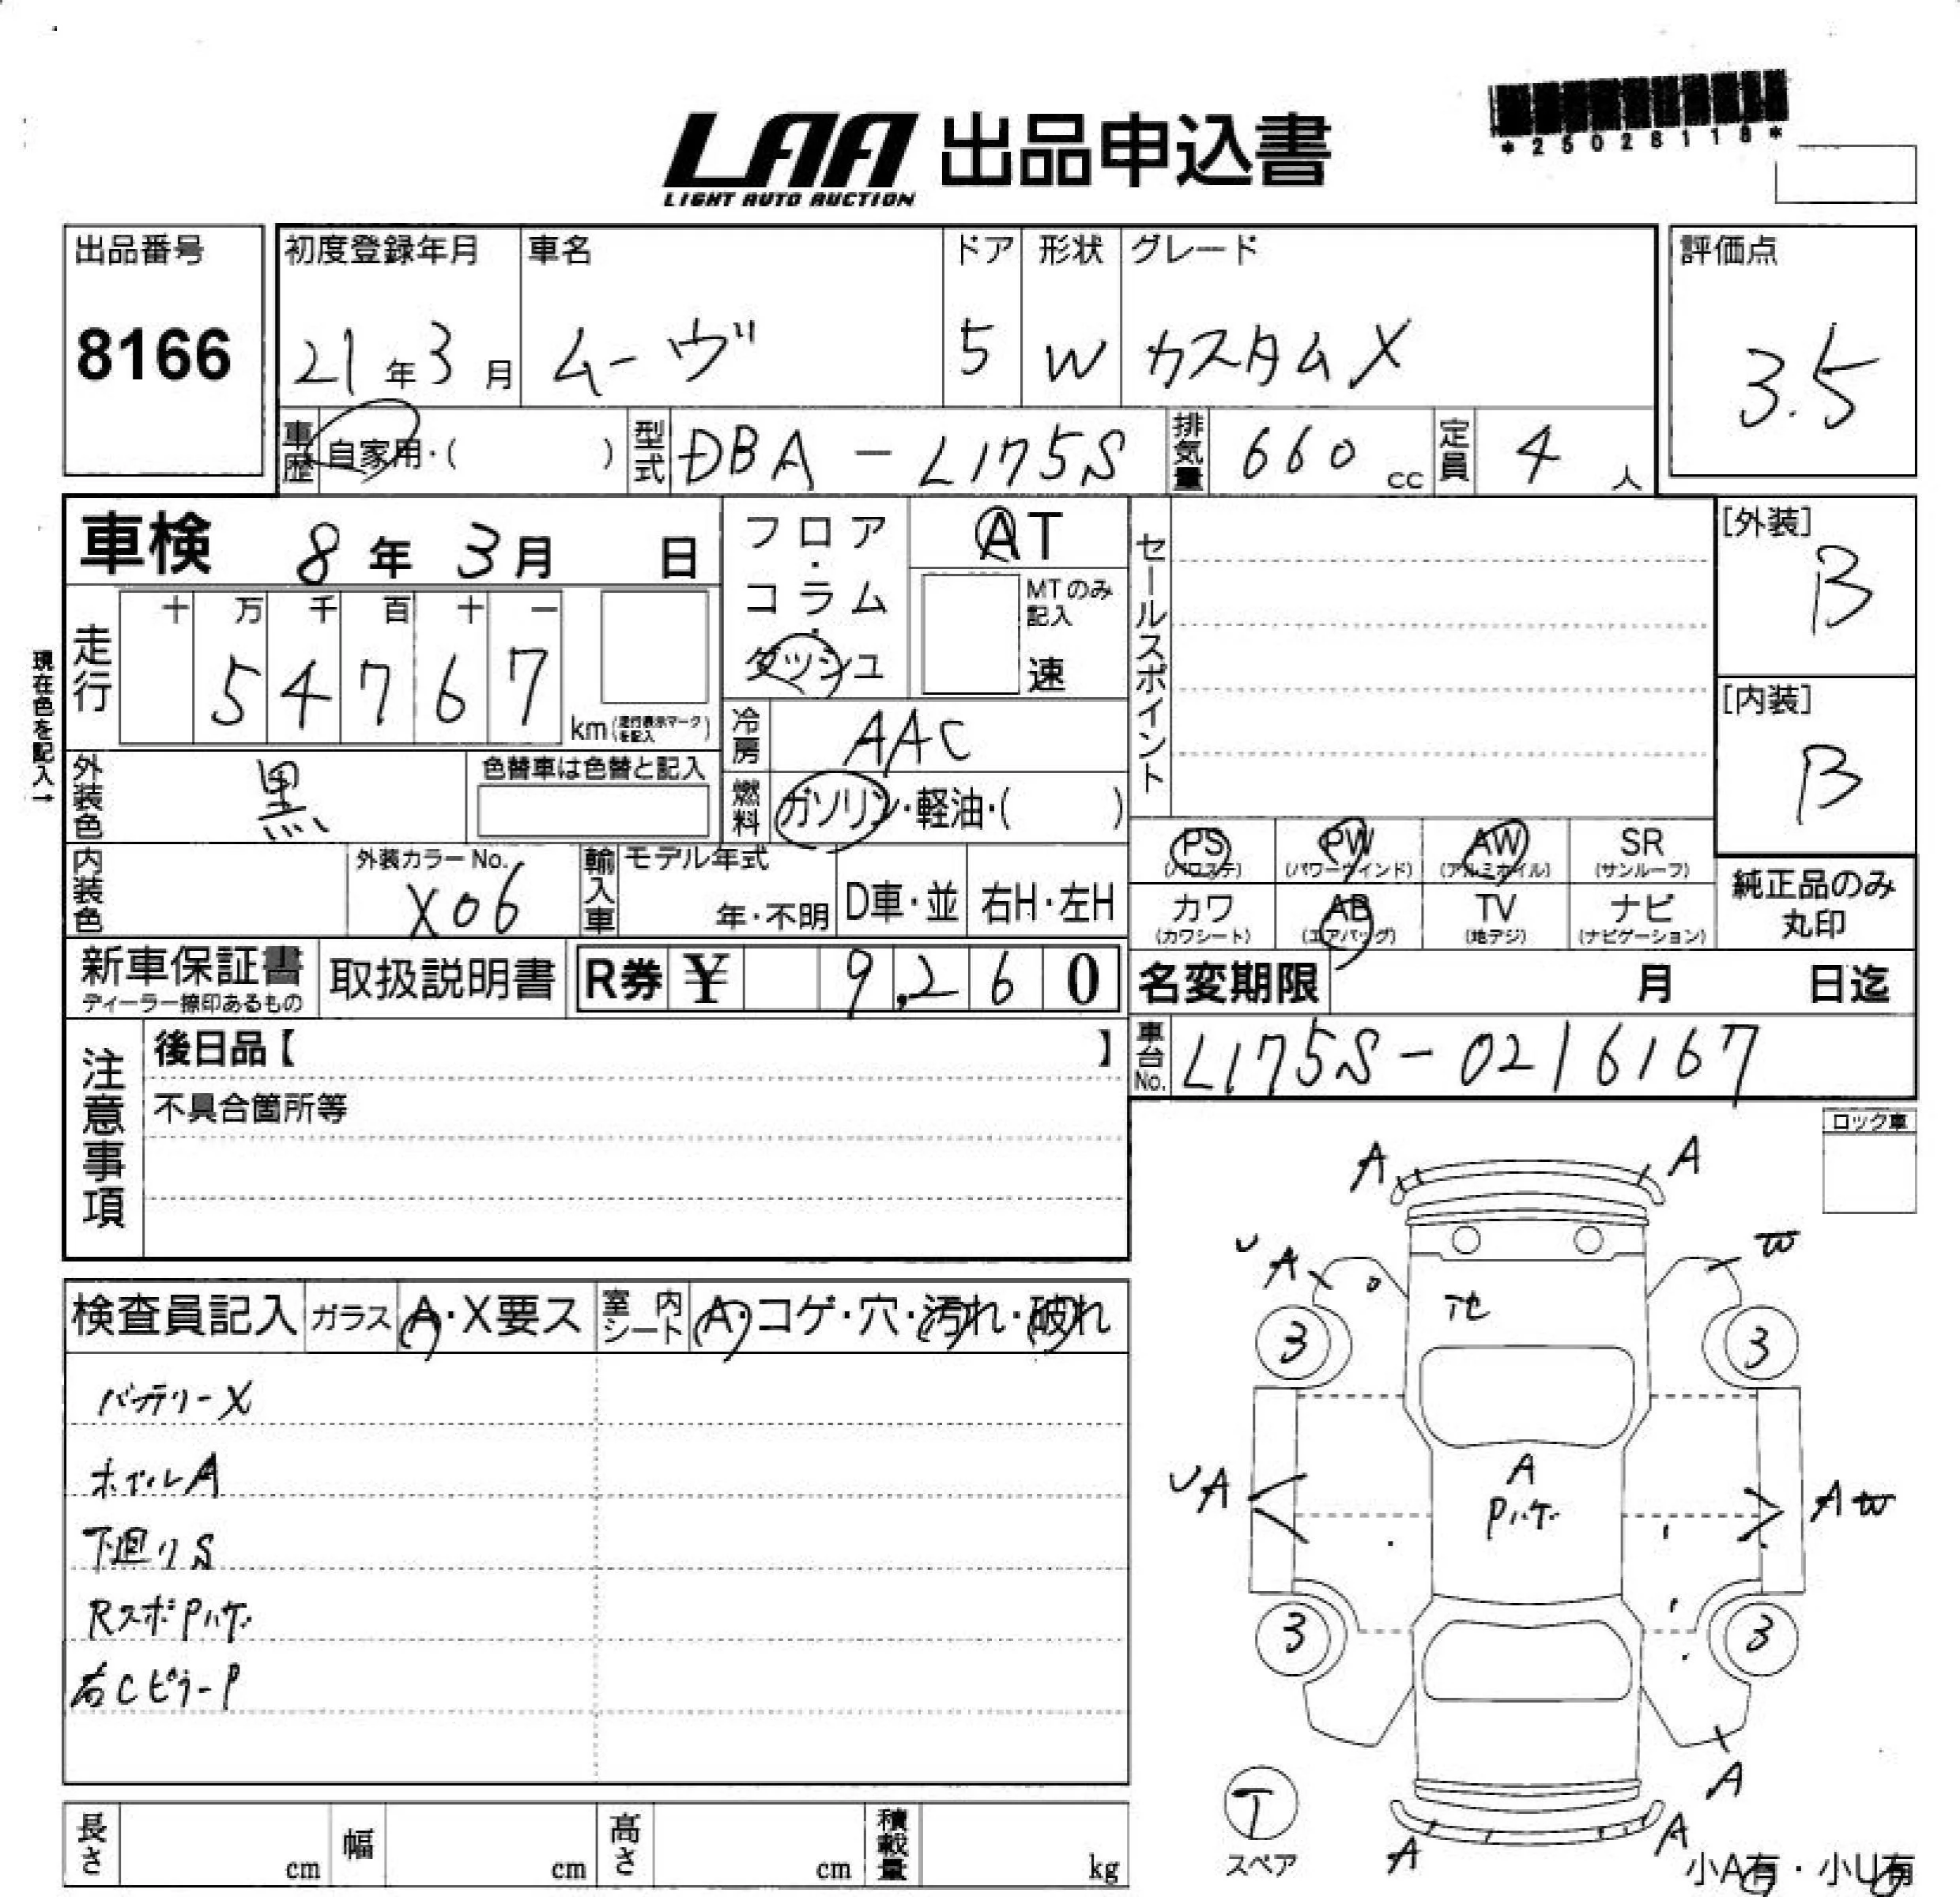 LAA 出品申込書
LIGHT AUTO AUCTION
*25028118*
出品番号
8166
初度登録年月
21年3月
車名
ムーヴ
ドア
5
形状
W
グレード
カスタムX
評価点
3.5
車歴
自家用・( )
型式
DBA-L175S
排気量
660cc
定員
4人
車検 8年3月 日
現在色を記入→
走行
十 万 千 百 十 一
5 4 7 6 7
km(走行表示マークを記入)
フロア・コラム・ダッシュ
AT
MTのみ記入
速
冷房
AAC
燃料
ガソリン・軽油・( )
セールスポイント
[外装]
B
[内装]
B
外装色
黒
色替車は色替と記入
内装色
外装カラーNo.
X06
輸入車
モデル年式
年・不明
D車・並
右H・左H
PS
(パワステ)
PW
(パワーウインド)
AW
(アルミホイル)
SR
(サンルーフ)
カワ
(カワシート)
AB
(エアバッグ)
TV
(地デジ)
ナビ
(ナビゲーション)
純正品のみ
丸印
新車保証書
ディーラー捺印あるもの
取扱説明書
R券 ¥ 9,260
名変期限 月 日迄
車台No.
L175S-0216167
注意事項
後日品【 】
不具合箇所等
ロック車
検査員記入
ガラス
A・X要ス
室内シート
A・コゲ・穴・汚れ・破れ
バッテリーX
ホイルA
下廻りS
RスポPハゲ
右CピラーP
A A
U A W
3 3
UA A W
A
Pハゲ
3 3
A
T
スペア
A A
小A有・小U有
長さ cm
幅 cm
高さ cm
積載量 kg